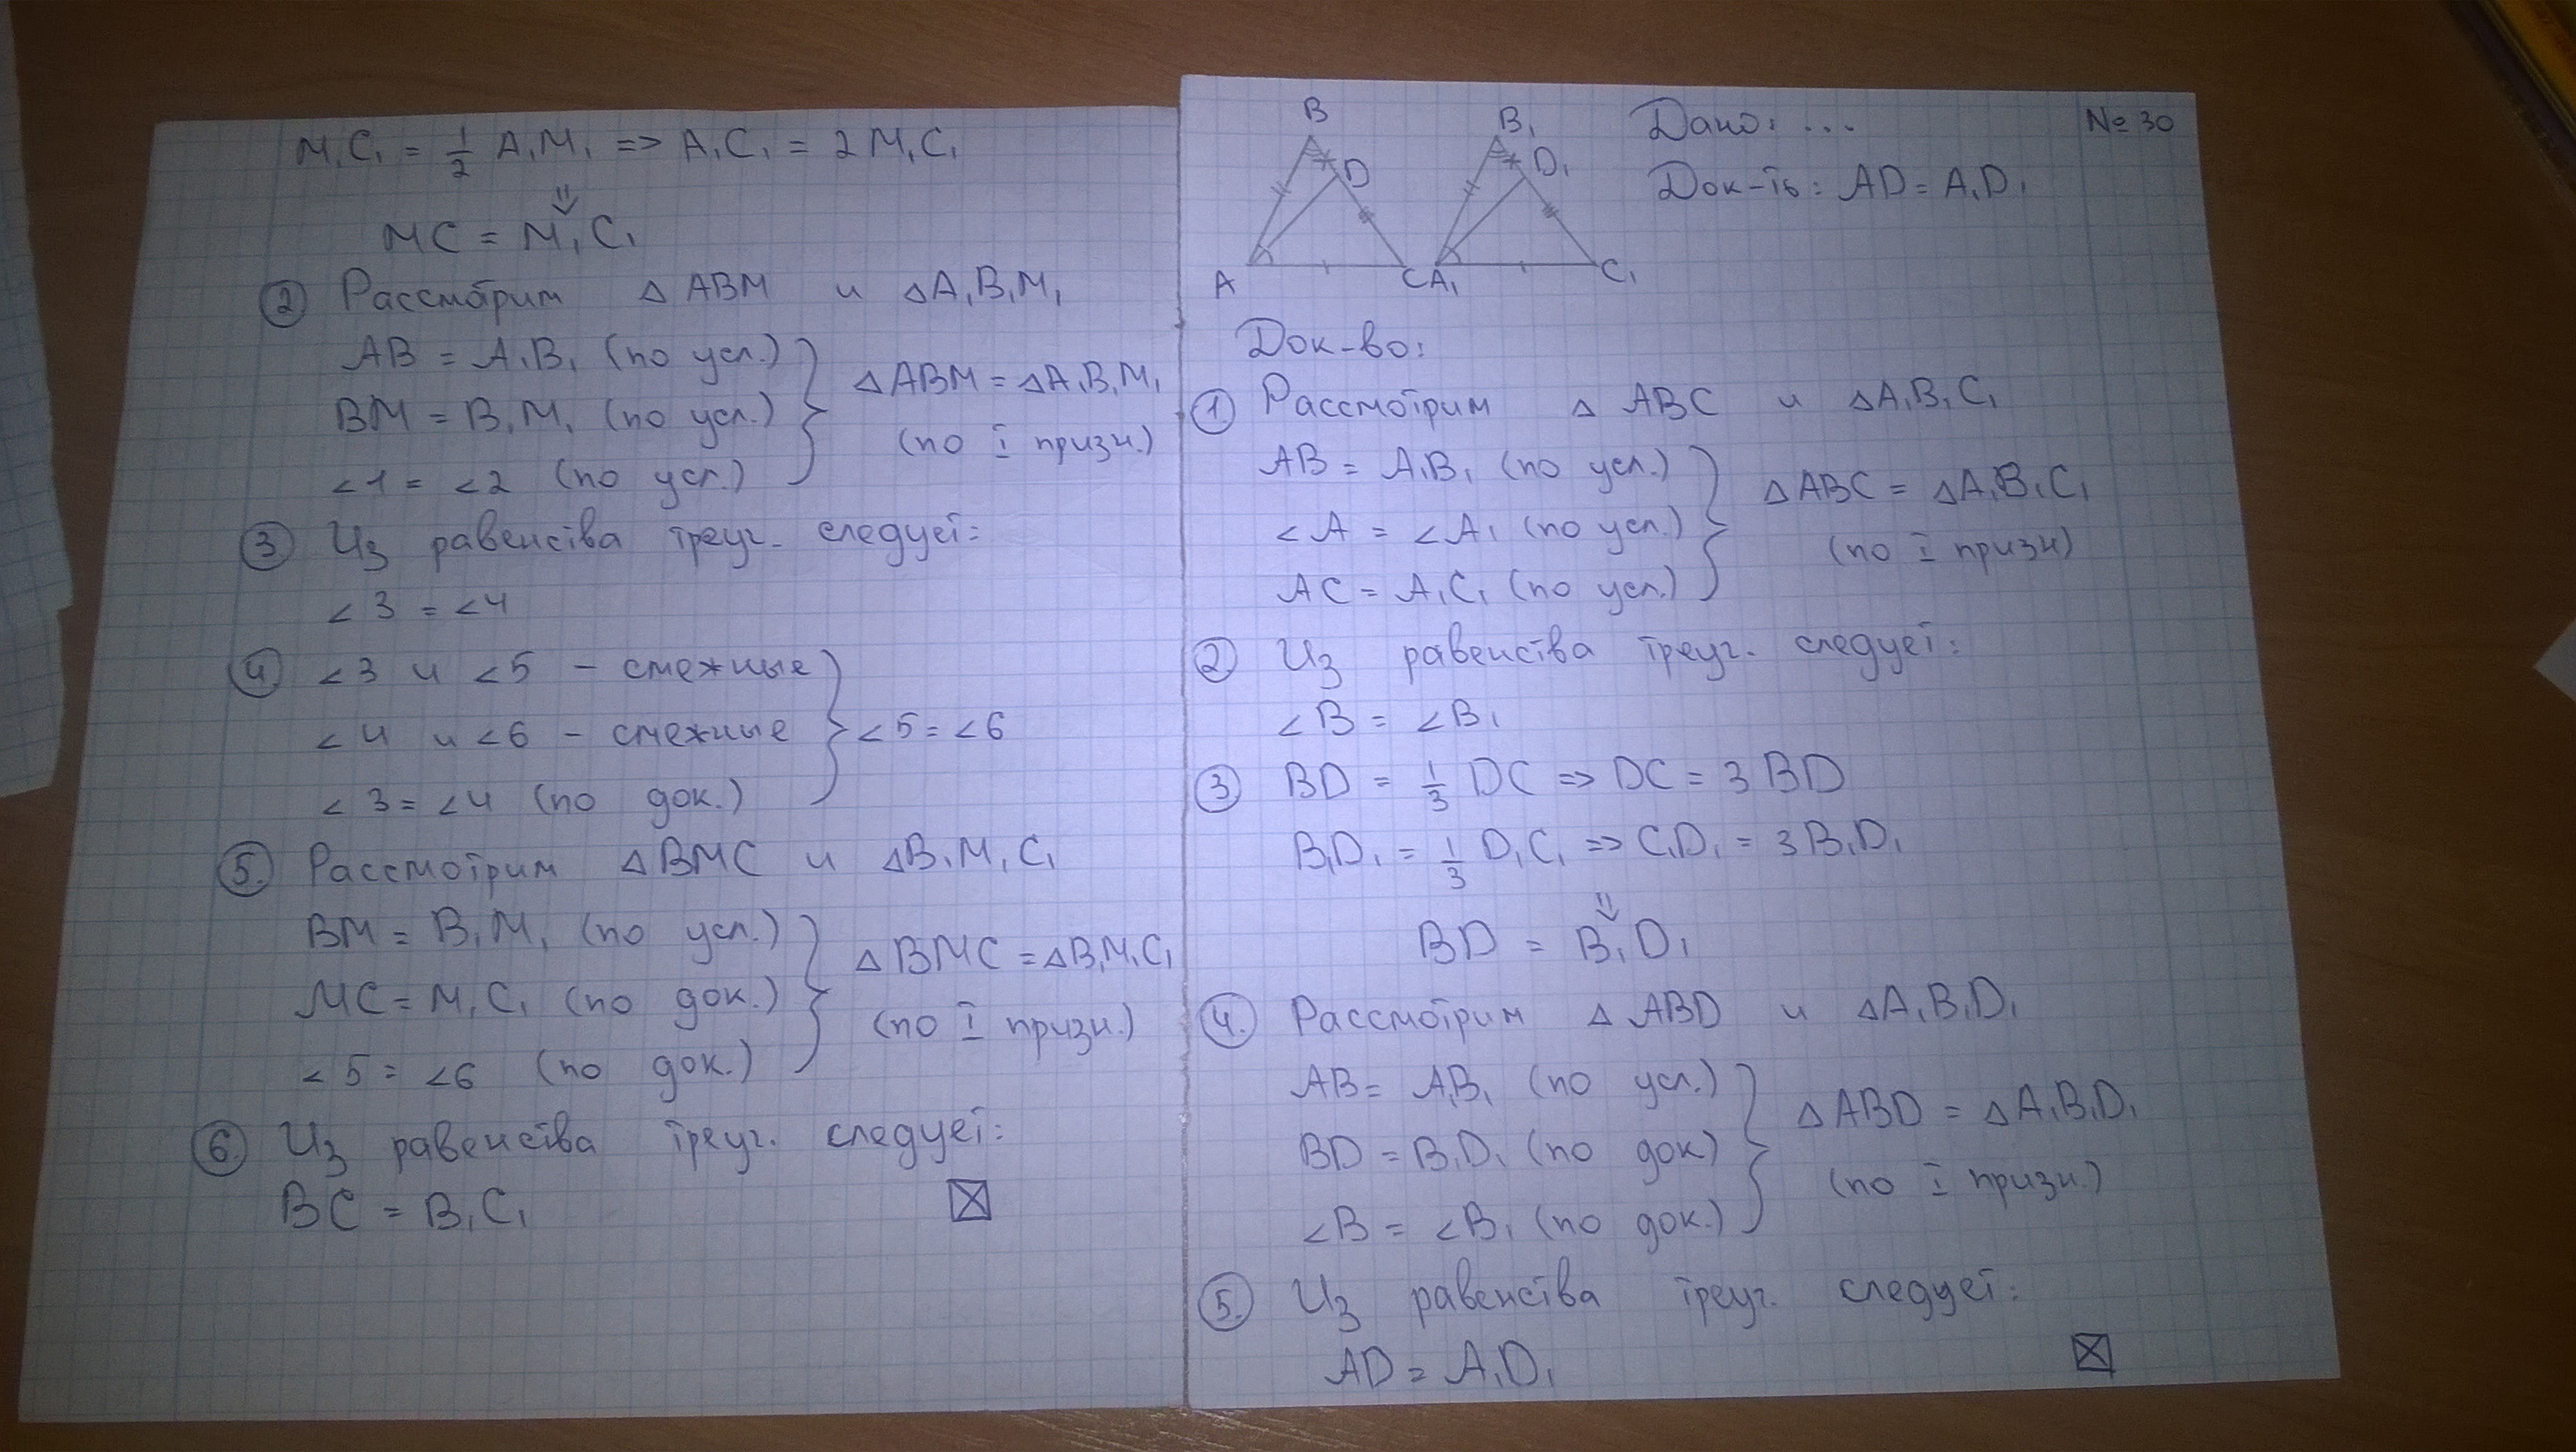 M₁C₁ = 1/2 A₁M₁ => A₁C₁ = 2 M₁C₁
⇓
MC = M₁C₁
② Рассмотрим △ ABM и △A₁B₁M₁
AB = A₁B₁ (по усл.)
BM = B₁M₁ (по усл.)
∠1 = ∠2 (по усл.)
} △ABM = △A₁B₁M₁
(по I призн.)
③ Из равенства треуг. следует:
∠3 = ∠4
④ ∠3 и ∠5 – смежные
∠4 и ∠6 – смежные
∠3 = ∠4 (по док.)
} ∠5 = ∠6
⑤. Рассмотрим △BMC и △B₁M₁C₁
BM = B₁M₁ (по усл.)
MC = M₁C₁ (по док.)
∠5 = ∠6 (по док.)
} △BMC = △B₁M₁C₁
(по I призн.)
⑥. Из равенства треуг. следует:
BC = B₁C₁
№ 30
B
D
A
C
B₁
D₁
A₁
C₁
Дано: ...
Док-ть: AD = A₁D₁
Док-во:
① Рассмотрим △ ABC и △A₁B₁C₁
AB = A₁B₁ (по усл.)
∠A = ∠A₁ (по усл.)
AC = A₁C₁ (по усл.)
} △ABC = △A₁B₁C₁
(по I призн)
② Из равенства треуг. следует:
∠B = ∠B₁
③ BD = 1/3 DC => DC = 3 BD
B₁D₁ = 1/3 D₁C₁ => C₁D₁ = 3 B₁D₁
⇓
BD = B₁D₁
④. Рассмотрим △ ABD и △A₁B₁D₁
AB = A₁B₁ (по усл.)
BD = B₁D₁ (по док)
∠B = ∠B₁ (по док.)
} △ABD = △A₁B₁D₁
(по I призн.)
⑤. Из равенства треуг. следует:
AD = A₁D₁